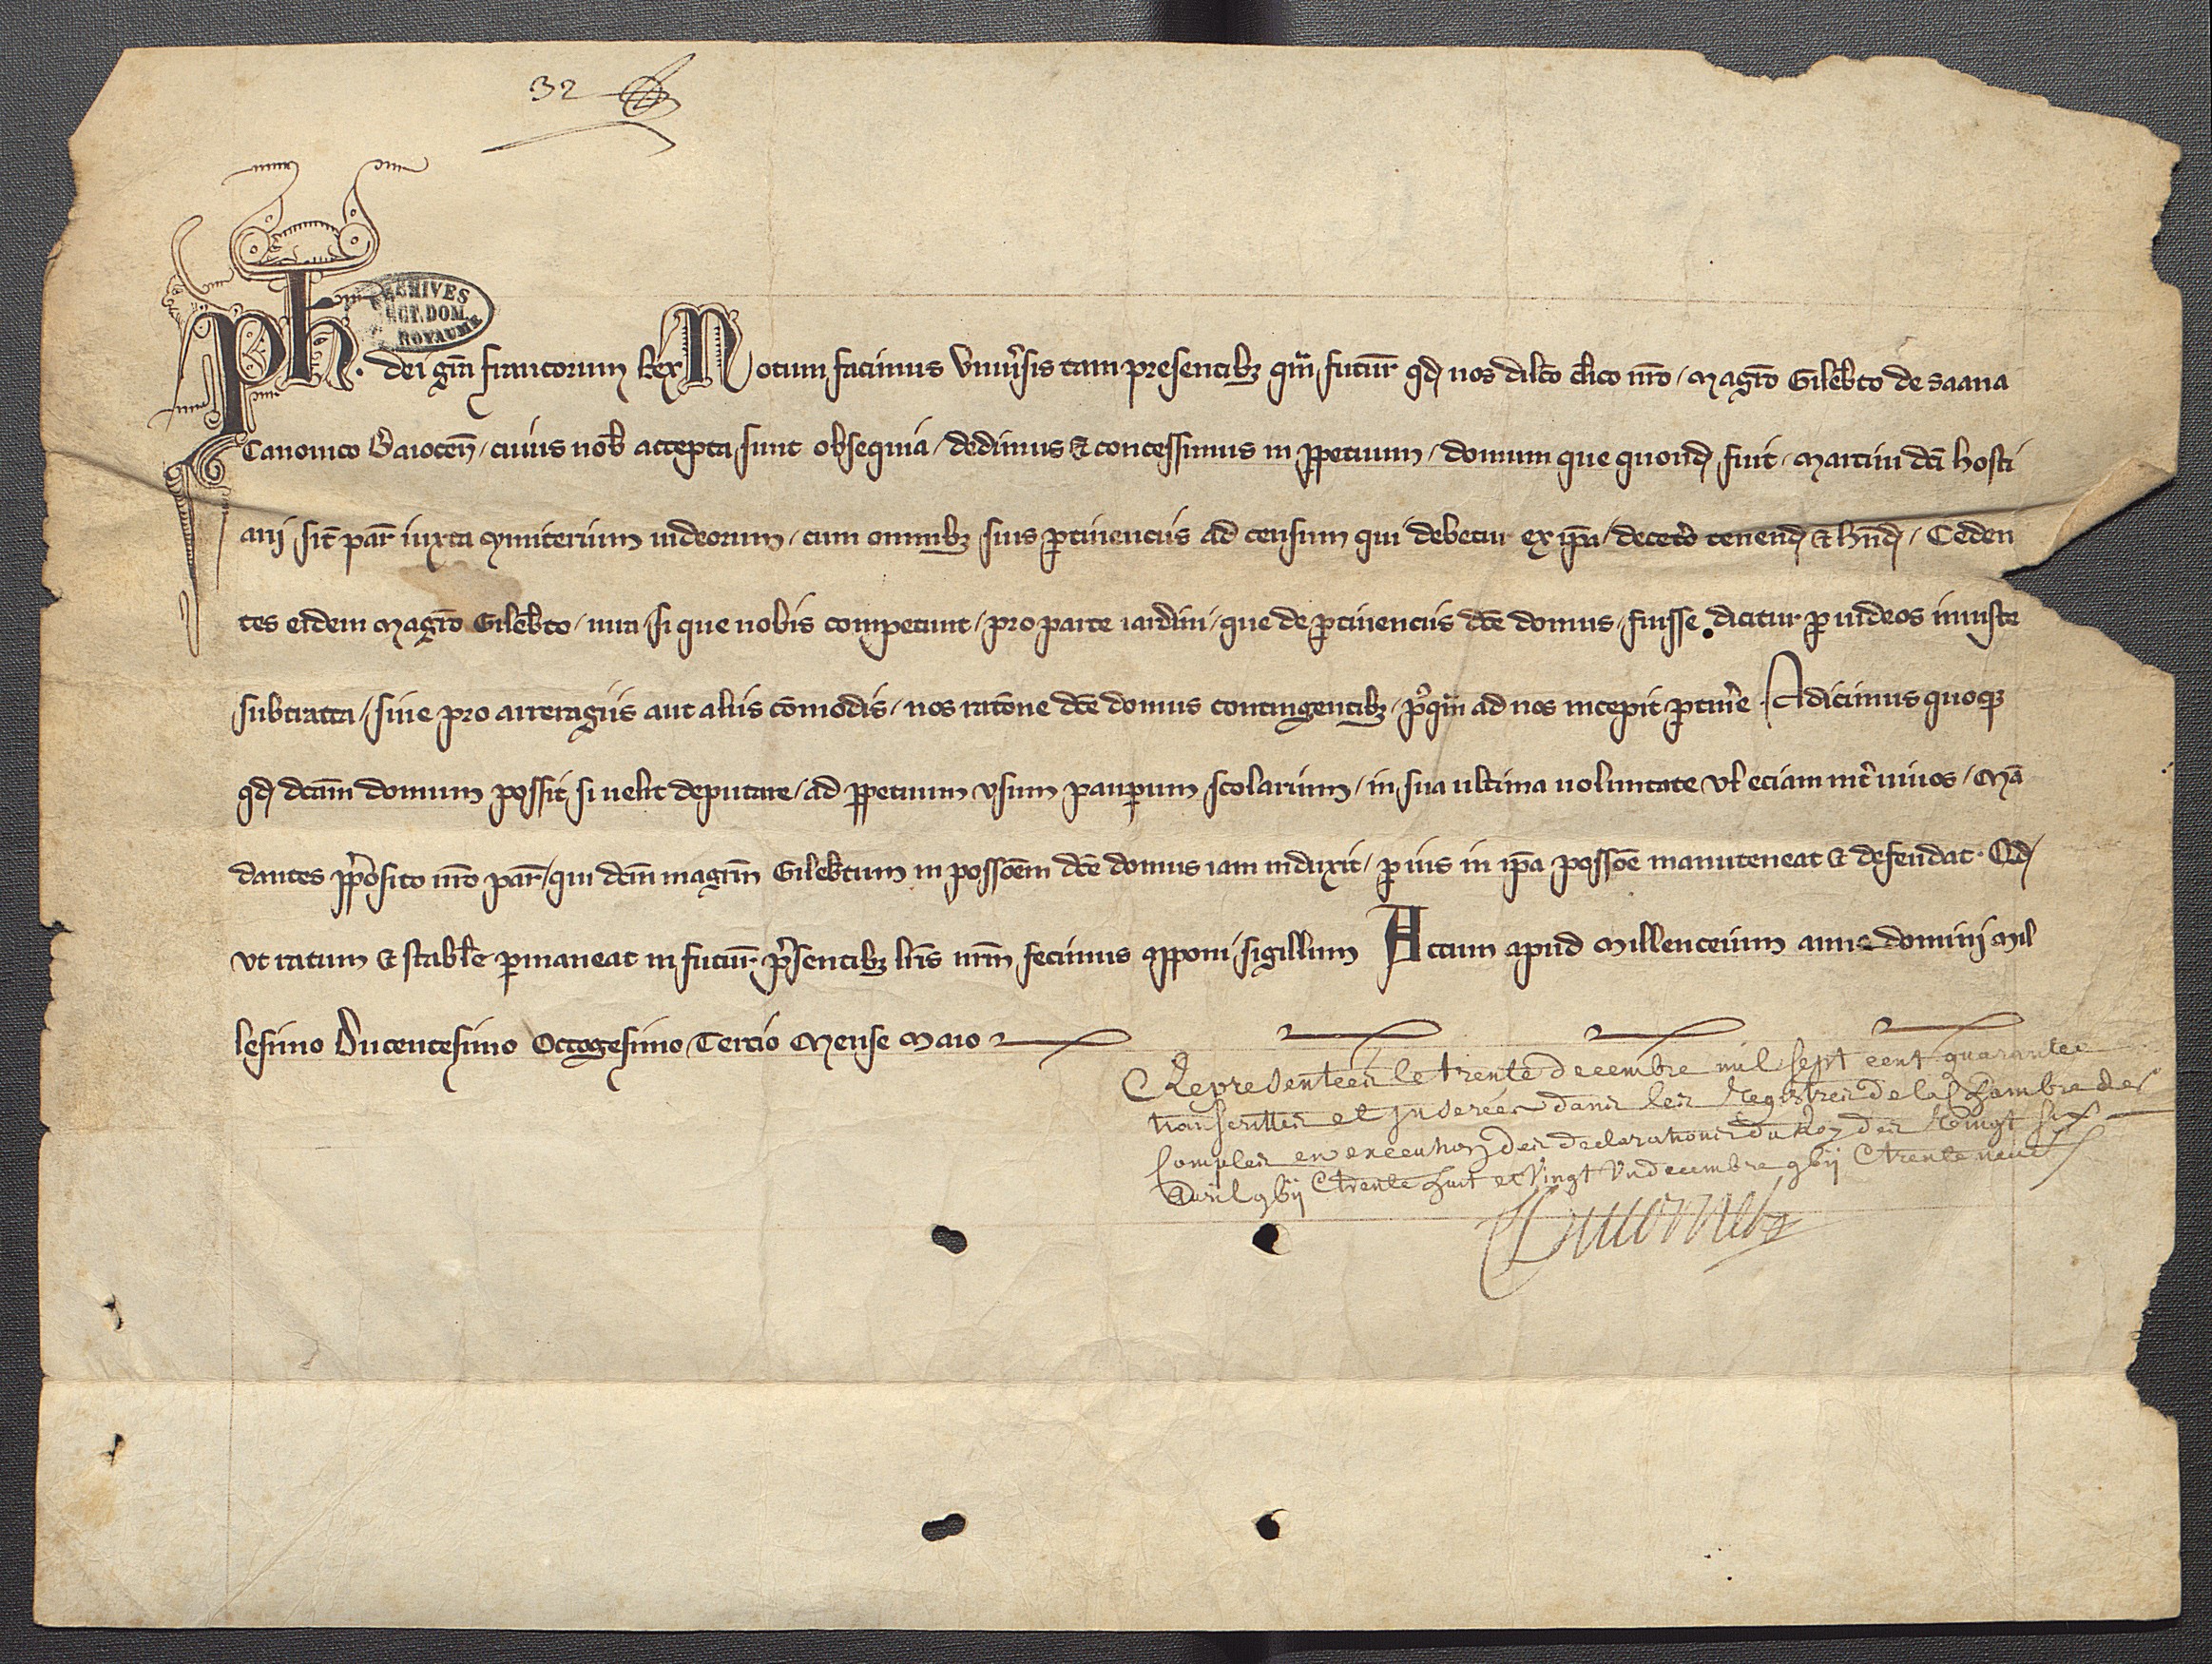 32
ARCHIVES
SECT. DOM.
ROYAUME
Ph. dei gr̄a francorum Rex Notum facimus Vniu̾sis tam presentibꝫ qm̄ futur̄ qd̨ nos dilc̄o cl̄ico nr̄o / Magr̄o Gileb̄to de Saana
Canonico Baiocen̄ / cuius nob̄ accepta sunt obsequia / dedimus & concessimus in ꝑpetuum / domum que quond̨ fuit / Martini dc̄i hosti
arij sit̄ par̄ iuxta cymiterium iudeorum / cum omnibꝫ suis ꝑtinenciis ad censum qui debetur ex ip̄a / decet̾o tenend̨ & hn̄d̨ / Ceden
tes eidem Magr̄o Gileb̄to / iura si que nobis competunt / pro parte iardini / que de ꝑtinenciis dc̄e domus / fuisse dicitur ꝑ iudeos iniuste
subtracta / siue pro arreragiis aut aliis cōmodis / nos rac̄one dc̄e domus contingentibꝫ / p̾qm̄ ad nos incepit ꝑtin̾e Adicimus quoqꝫ
qd̨ dc̄am domum possit si uelit deputare / ad ꝑpetuum vsum pauꝑum scolarium / in sua ultima uoluntate vl̄ eciam int̾ uiuos / Mā
dantes p̄posito nr̄o par̄ / qui dc̄m magr̄m Gileb̄tum in possc̄em dc̄e domus iam induxit / ꝑ ius in ip̄a possc̄e manuteneat & defendat. Qd̨
vt ratum & stabl̄e ꝑmaneat in futur̄ p̾sentibꝫ lr̄is nr̄m fecimus apponi sigillum Actum apud Millencerium anno domini Mil
lesimo Ducentesimo Octogesimo Tercio Mense Maio
Representées le trente decembre mil sept cent quarante
transcrittes et Inserées dans les Registres de la Chambre des
Comptes en execution des declarations du Roy des Vingt six
Avril gbij C trente huit et Vingt Un decembre gbij C trente neuf